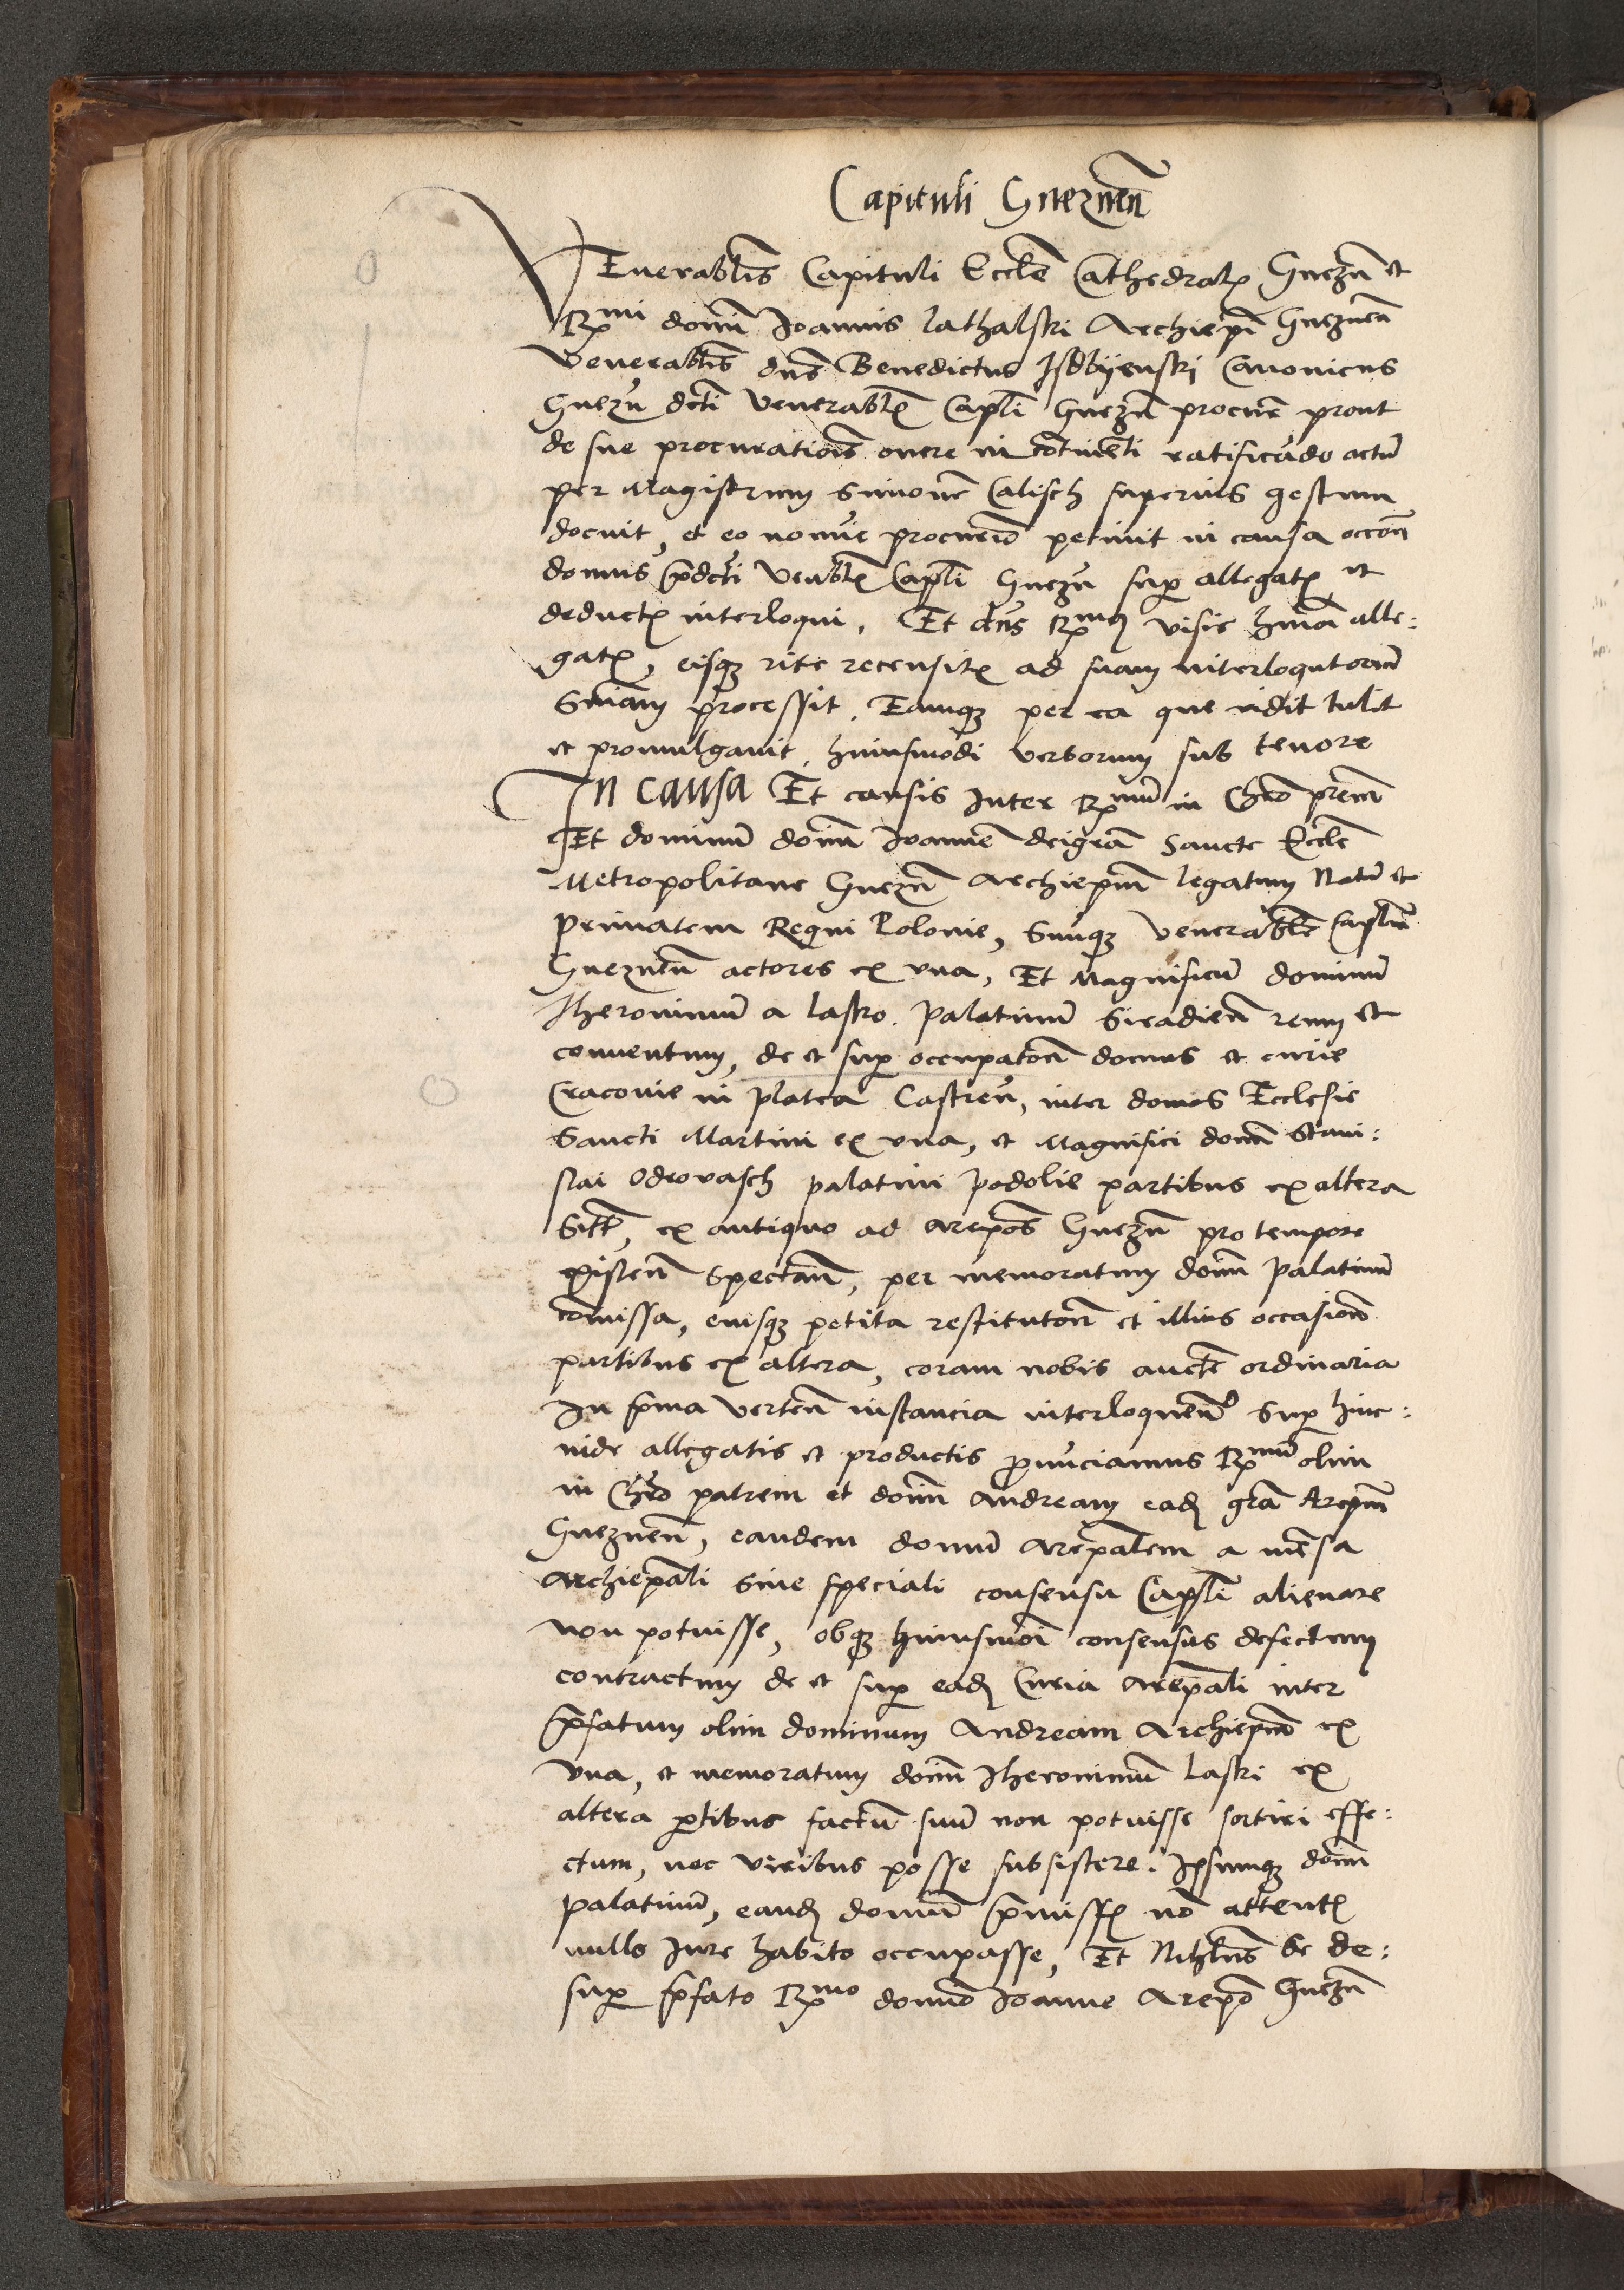 Capituli Gneznen̄
VEnerabilis Capituli Eccl̄e Cathedral̄ Gnezn̄ et
Rmi domī Joannis lathalski Archiepī Gneznen̄
Venerabilis dn̄s Benedictus Isdbijenski Canonicus
Gnezn̄ dcti Venerabl̄ Capl̄i Gnezn̄ procur̄ prout
de sue procurationis onere in cōtinēti ratificādo actū
per Magistrum Simonē Calisch superius gestum
docuit, et eo nomīe procur̄io petiuit in causa occōn̄
domus p̄dcti Venbl̄ Capl̄i Gnezn̄ sup allegat̄ et
deduct̄ interloqui. Et dn̄s Rmus visis hīnc alle:
gat̄, eisqз rite recensit̄ ad suam interlogutoriā
Sniam processit. Eamqз per ea que vidit tulit
et promulgauit. huiusmodi verborum sub tenore
In causa Et causis Inter Rmū in Chro prem̄
Et dominū domī Joannē deigrā Sancte Eccl̄e
Metropolitane Gnezn̄ Archiepm̄ legatum Natū et
primatem Regni Polonie, Suūqз Venerable Caplm̄
Gneznen̄ actores ex vna, Et Magnificū dominū
Iheronimū a lasko. palatinū Siradien̄ reum et
conuentum, de et sup occupaton̄ domus et curie
Craconie in platea Castren̄, inter domos Ecclesie
Sancti Martini ex vna, et Magnifici dom̄ Stani:
slai Odrouasch palatini podolie partibus ex altera
Sitt̄, ex antiquo ad arepos̄ Gnezn̄ pro tempore
existen̄ Spectan̄, per memoratum domī palatinū
comissa, eiusqз petita restituton̄ et illius occasion̄
partibus ex altera, coram nobis aucte ordinaria
In prima Verten̄ instancia interloquen̄o Sup hinc:
inde allegatis et productis pronūciamus Rmū olim
in Chro patrem et domī Andream ead̄ gra Arepm̄
Gneznen̄, eandem domū arepalem a mēsa
archiepali Sine speciali consensu Capl̄i alienare
non potuisse, obqз huiusmoi consensus defectum
contractum de et sup ead̄ Curia arepali inter
p̄fatum olim dominum Andream Archiepm̄ ex
vna, et memoratum domī Iheronimū laski ex
altera ptibus factū suū non potuisse sortiri effe:
ctum, nec viribus posse subsistere. Ipsumqз domī
palatinū, eand̄ domū p̄miss̄ nō attent̄
nullo Iure habito occupasse, Et Nihlns̄ de de:
sup p̄fato Rmo domīo Joanne Arepo Gnezn̄